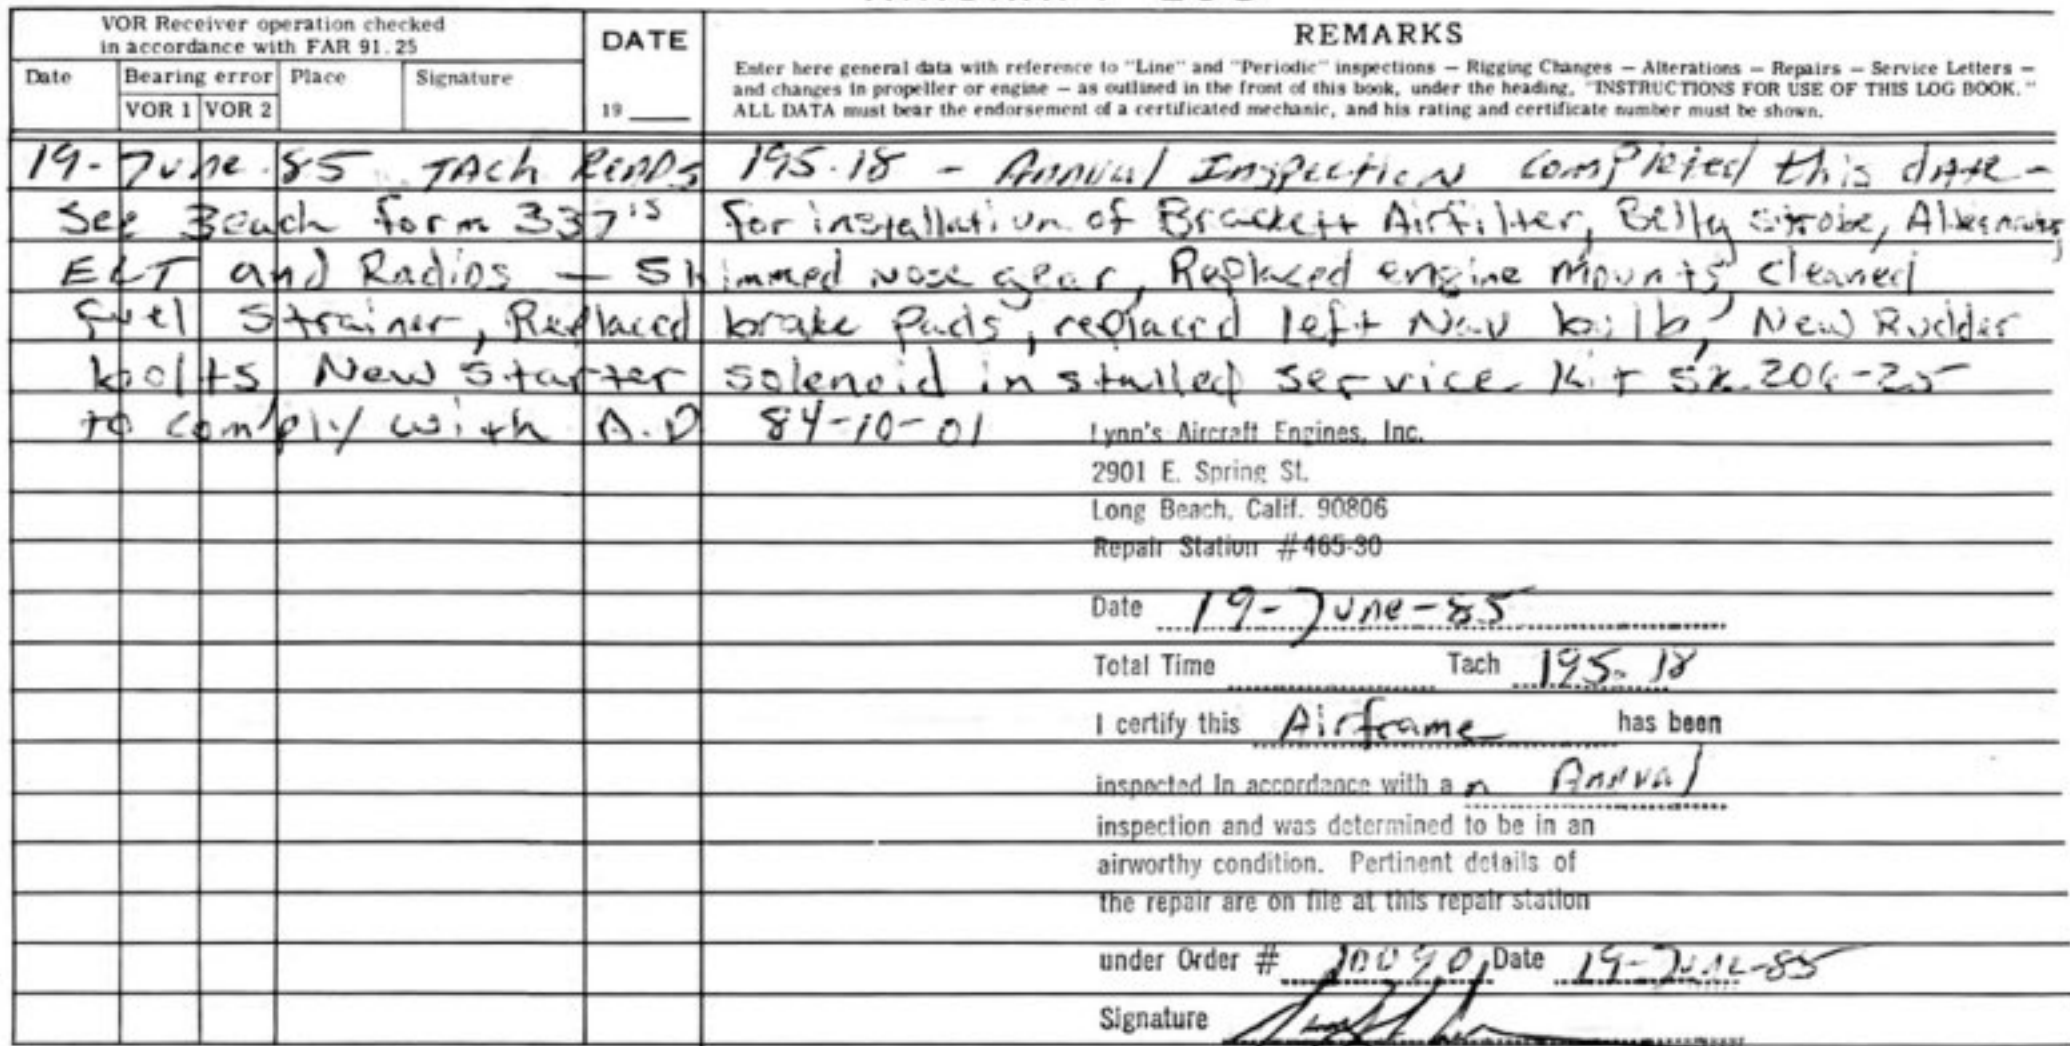 VOR Receiver operation checked
in accordance with FAR 91.25
Date
Bearing error
VOR 1 VOR 2
Place
Signature
DATE
19
REMARKS
Enter here general data with reference to "Line" and "Periodic" inspections — Rigging Changes — Alterations — Repairs — Service Letters —
and changes in propeller or engine — as outlined in the front of this book, under the heading, "INSTRUCTIONS FOR USE OF THIS LOG BOOK."
ALL DATA must bear the endorsement of a certificated mechanic, and his rating and certificate number must be shown.
19-June-85 TACh READS 195.18 - Annual Inspection completed this dAte -
See Beach form 337's for installation of Brackett Airfilter, Belly strobe,
ELT and Radios — Shimmed nose gear, Replaced engine mounts, cleaned
fuel strainer, Replaced brake pads, replaced left Nav bulb, New Rudder
bolts New starter solenoid installed service kit
to comply with A.D 84-10-01
Lynn's Aircraft Engines, Inc.
2901 E. Spring St.
Long Beach, Calif. 90806
Repair Station #465-30
Date 19-June-85
Total Time Tach 195.18
I certify this Airframe has been
inspected in accordance with a n Annual
inspection and was determined to be in an
airworthy condition. Pertinent details of
the repair are on file at this repair station
under Order # Date 19-June-85
Signature